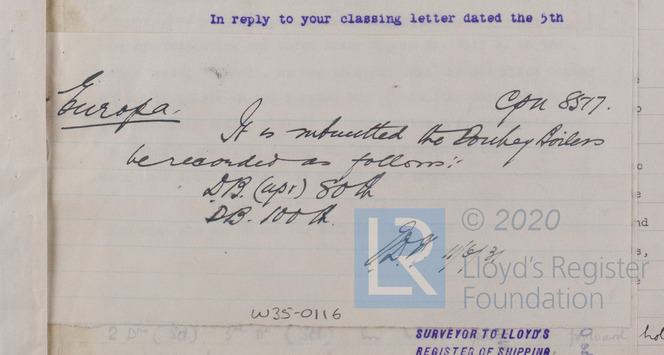 In reply to your classing letter dated the 5th
Europa.
Cpn 8577.
It is submitted the Donkey Boilers
be recorded as follows:-
DB. (aps) 80 lb
DB. 100 lb.
LR
© 2020
Lloyd's Register
Foundation
W35-0116
SURVEYOR TO LLOYD'S
REGISTER OF SHIPPING